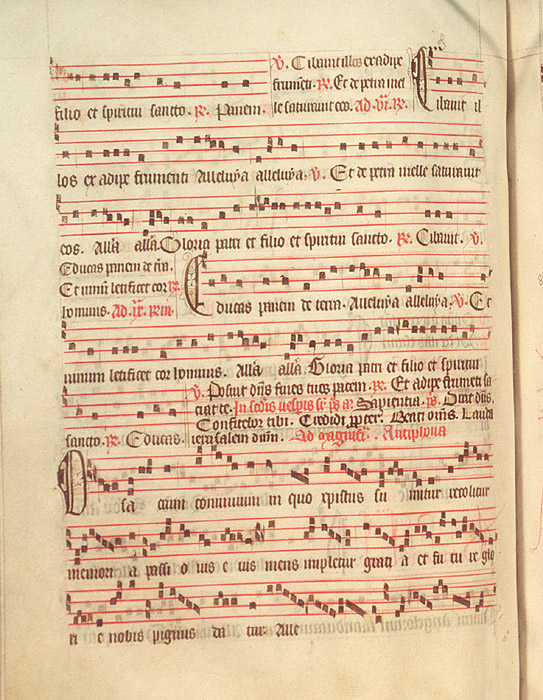 V. Cibauit illos ex adipe
frumẽti. R. Et de petra mel
filio et spiritui sancto. R. Panem. le saturauit eos. Ad .VI. R. Cibauit il
los ex adipe frumenti Alleluya alleluya. V. Et de petra melle saturauit
eos. All'a all'a. Gloria patri et filio et spiritui sancto. R. Cibauit. V.
Educas panem de t'ra.
Et uinũ letificet cor R.
hominis. Ad .IX. R. Educas panem de terra. Alleluya alleluya. V. Et
uinum letificet cor hominis. All'a all'a. Gloria patri et filio et spiritui
V. Posuit dñs fines tuos pacem. R. Et adipe frumẽti sa
ciat te. Sapientia. Dixit dñs.
Confitebor tibi. Credidi propter. Beati om̃s. Lauda
sancto. R. Educas. ierusalem dñm. Ad magnificat. Antiphona
O sa crum conuiuium in quo xpistus su mitur recolitur
memori a passi o nis e ius mens impletur grati a et fu tu re glo
ri e nobis pignus da tur. Alle